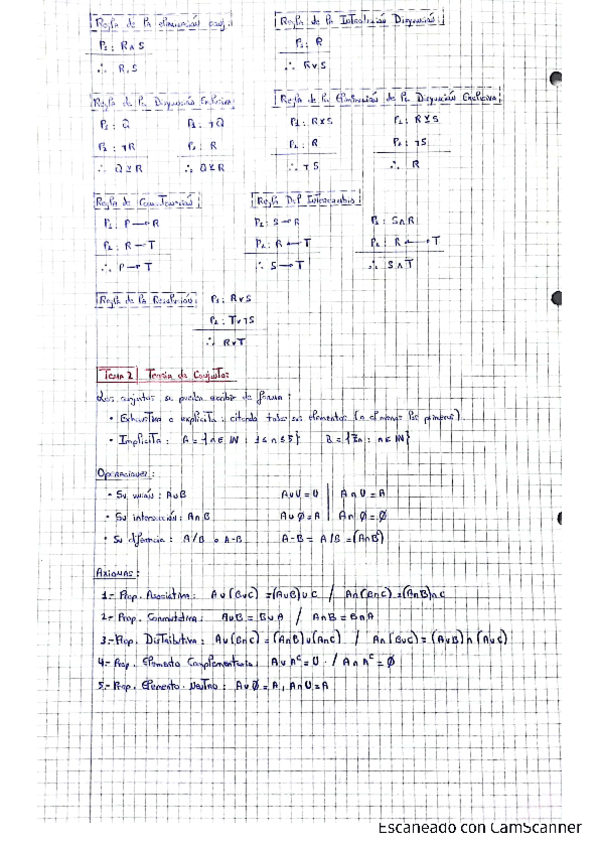 Regla de la eliminación conj.:
P₁: R∧S
∴ R, S
Regla de la Introducción Disyunción:
P₁: R
∴ R∨S
Regla de la Disyunción Exclusiva:
P₁: Q P₁: ¬Q
P₂: ¬R P₂: R
∴ Q⊻R ∴ Q⊻R
Regla de la Eliminación de la Disyunción Exclusiva:
P₁: R⊻S P₁: R⊻S
P₂: R P₂: ¬S
∴ ¬S ∴ R
Regla de
P₁: P→R
P₂: R→T
∴ P→T
Regla Del Intercambio:
P₁: S→R P₁: S∧R
P₂: R↔T P₂: R↔T
∴ S→T ∴ S∧T
Regla de la Resolución: P₁: R∨S
P₂: T∨¬S
∴ R∨T
Tema 2 Teoría de Conjuntos
Los conjuntos se pueden escribir de forma:
• Exhaustiva o explícita: citando todos sus elementos (o al menos los primeros).
• Implícita: A = {n∈ℕ : 1≤n≤5} B = {2n : n∈ℕ}
Operaciones:
• Su unión: A∪B A∪U=U | A∩U=A
• Su intersección: A∩B A∪∅=A | A∩∅=∅
• Su diferencia: A/B o A-B A-B = A/B =(A∩B)
Axiomas:
1.- Prop. Asociativa: A∪(B∪C)=(A∪B)∪C / A∩(B∩C)=(A∩B)∩C
2.- Prop. Conmutativa: A∪B = B∪A / A∩B = B∩A
3.- Prop. Distributiva: A∪(B∩C) = (A∩B)∪(A∩C) / A∩(B∪C) = (A∪B)∩(A∪C)
4.- Prop. Elemento Complementario: A∪Aᶜ=U / A∩Aᶜ=∅
5.- Prop. Elemento Neutro: A∪∅=A, A∩U=A
Escaneado con CamScanner